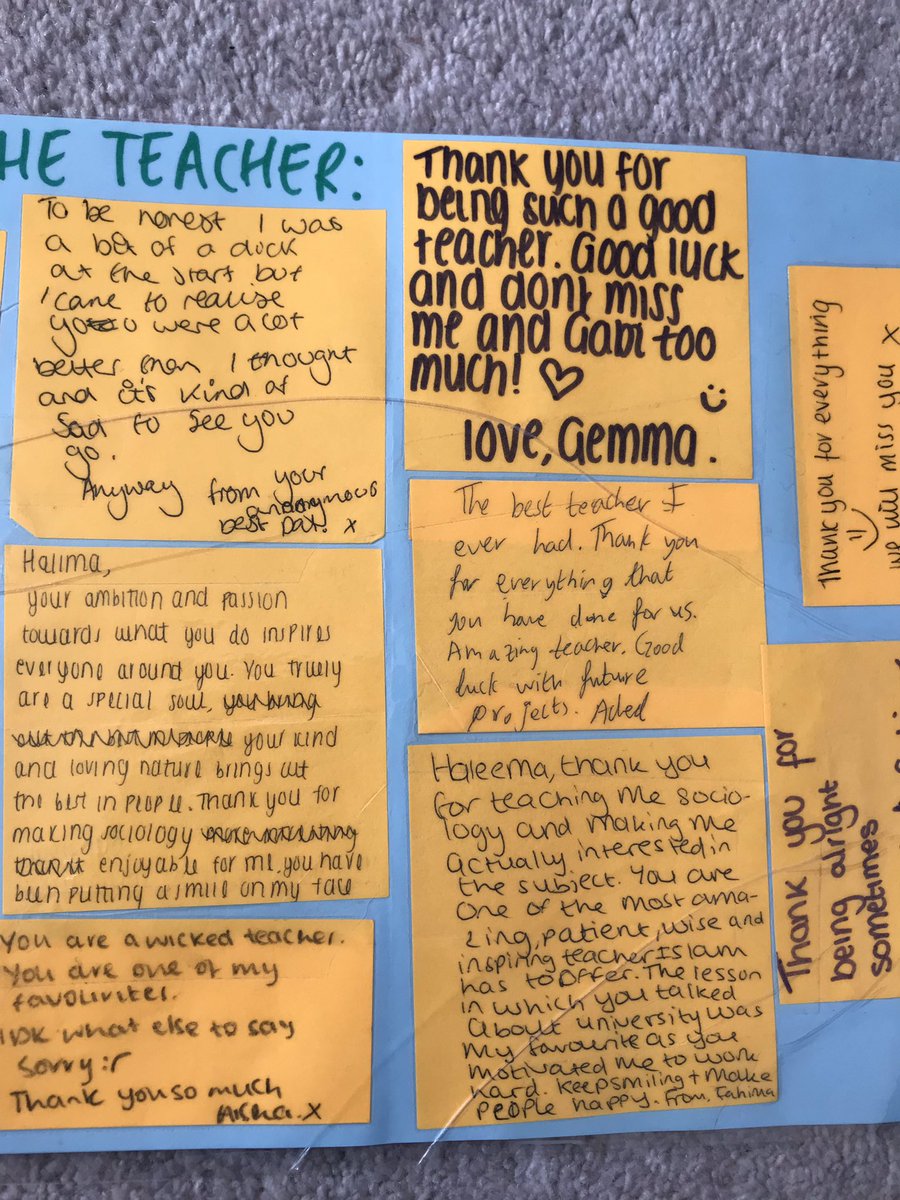 HE TEACHER:
To be honest I was
a bit of a dick
at the start but
I came to realise
you were a lot
better than I thought
and it's kind of
sad to see you
go.
Anyway from your
anonymous
best pal. x
Thank you for
being such a good
teacher. Good luck
and dont miss
me and Gabi too
much! ♡
:)
love, Gemma.
Halima,
your ambition and passion
towards what you do inspires
everyone around you. You truely
are a special soul,
your kind
and loving nature brings out
the best in people. Thank you for
making sociology
enjoyable for me, you have
been putting a smile on my face
The best teacher I
ever had. Thank you
for everything that
you have done for us.
Amazing teacher. Good
luck with future
projects.
You are a wicked teacher.
You are one of my
favourites.
IDK what else to say
sorry :(
Thank you so much
Aisha. x
Haleema, thank you
for teaching me socio-
logy and making me
actually interested in
the subject. You are
one of the most ama-
zing, patient, wise and
inspiring teacher Islam
has to offer. The lesson
in which you talked
about university was
my favourite as you
motivated me to work
hard. Keep smiling + make
people happy. From, Fahima
Thank you for everything
:)
we will miss you x
Thank you for
being alright
sometimes